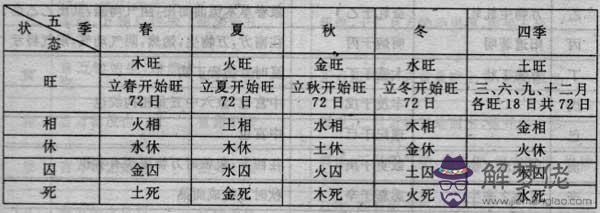 状态 五 季 春 夏 秋 冬 四季
旺 木旺 火旺 金旺 水旺 土旺
立春开始旺 立夏开始旺 立秋开始旺 立冬开始旺 三、六、九、十二月
72日 72日 72日 72日 各旺18日共72日
相 火相 土相 水相 木相 金相
休 水休 木休 土休 金休 火休
囚 金囚 水囚 火囚 土囚 囚
死 土死 金死 木死 火死 水死
解梦佬
www.jiemenglao.com